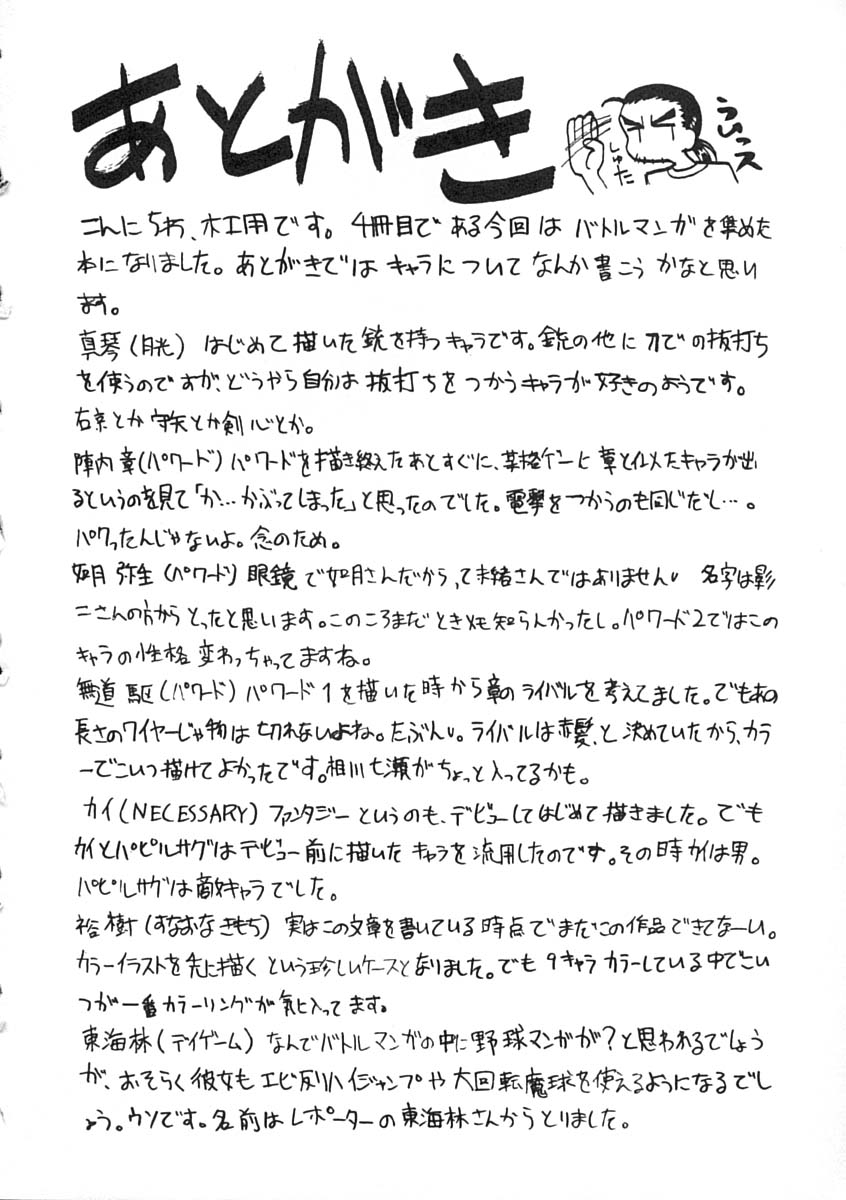 あとがき
ういっス
しゅた
こんにちわ、木工用です。4冊目である今回はバトルマンガを集めた
本になりました。あとがきではキャラについてなんか書こうかなと思い
ます。
真琴(月光) はじめて描いた銃を持つキャラです。銃の他に刀での抜打ち
を使うのですが、どうやら自分は抜打ちをつかうキャラが好きのようです。
右京とか守矢とか剣心とか。
陣内章(パワード) パワードを描き終えたあとすぐに、某格ゲーに章と似たキャラが出
るというのを見て「か…かぶってしまった」と思ったのでした。電撃をつかうのも同じだし…。
パクったんじゃないよ。念のため。
如月弥生(パワード) 眼鏡で如月さんだからって未緒さんではありません 名字は影
二さんの方からとったと思います。このころまだときメモ知らんかったし。パワード2ではこの
キャラの性格変わっちゃってますね。
無道駆(パワード) パワード1を描いた時から章のライバルを考えてました。でもあの
長さのワイヤーじゃ物は切れないよね。たぶん。ライバルは赤髪、と決めていたから、カラ
ーでこいつ描けてよかったです。相川七瀬がちょっと入ってるかも。
カイ(NECESSARY) ファンタジーというのも、デビューしてはじめて描きました。でも
カイとパピルサグはデビュー前に描いたキャラを流用したのです。その時カイは男。
パピルサグは敵キャラでした。
裕樹(すなおなきもち) 実はこの文章を書いている時点でまだこの作品できてなーい。
カラーイラストを先に描くという珍しいケースとなりました。でも9キャラカラーしている中でこい
つが一番カラーリングが気に入ってます。
東海林(デイゲーム) なんでバトルマンガの中に野球マンガが?と思われるでしょう
が、おそらく彼女もエビ反りハイジャンプや大回転魔球を使えるようになるでし
ょう。ウソです。名前はレポーターの東海林さんからとりました。